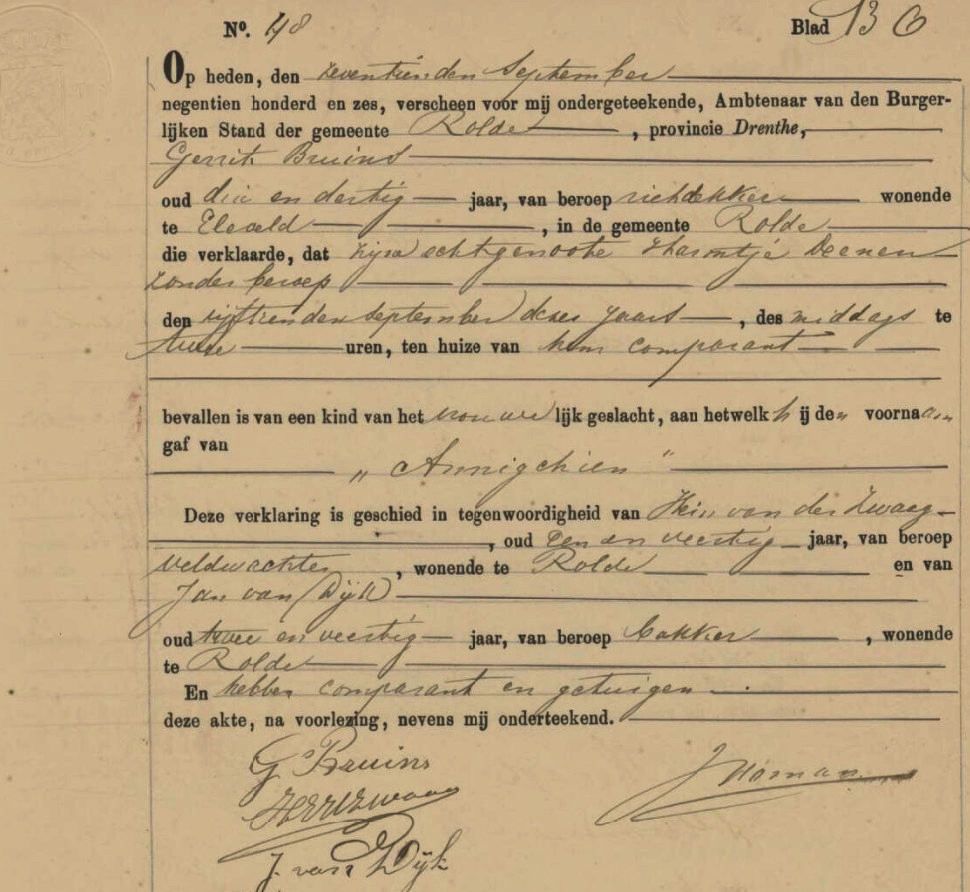 Nº. 48 Blad 13 C
Op heden, den zeventienden September
negentien honderd en zes, verscheen voor mij ondergeteekende, Ambtenaar van den Burger-
lijken Stand der gemeente Rolde, provincie Drenthe,
Gerrit Bruins
oud drie en dertig jaar, van beroep rietdekker wonende
te Eleveld, in de gemeente Rolde
die verklaarde, dat zijne echtgenoote Harmtje Deenen
zonder beroep
den vijftienden september dezes jaars, des middags te
twee uren, ten huize van hem comparant
bevallen is van een kind van het vrouwelijk geslacht, aan hetwelk hij den voornaam
gaf van
„ Annigchien "
Deze verklaring is geschied in tegenwoordigheid van Hein van der Zwaag
, oud een en veertig jaar, van beroep
veldwachter, wonende te Rolde en van
Jan van Dijk
oud twee en veertig jaar, van beroep bakker, wonende
te Rolde
En hebben comparant en getuigen
deze akte, na voorlezing, nevens mij onderteekend.
G Bruins
J Homan
J. van Dijk